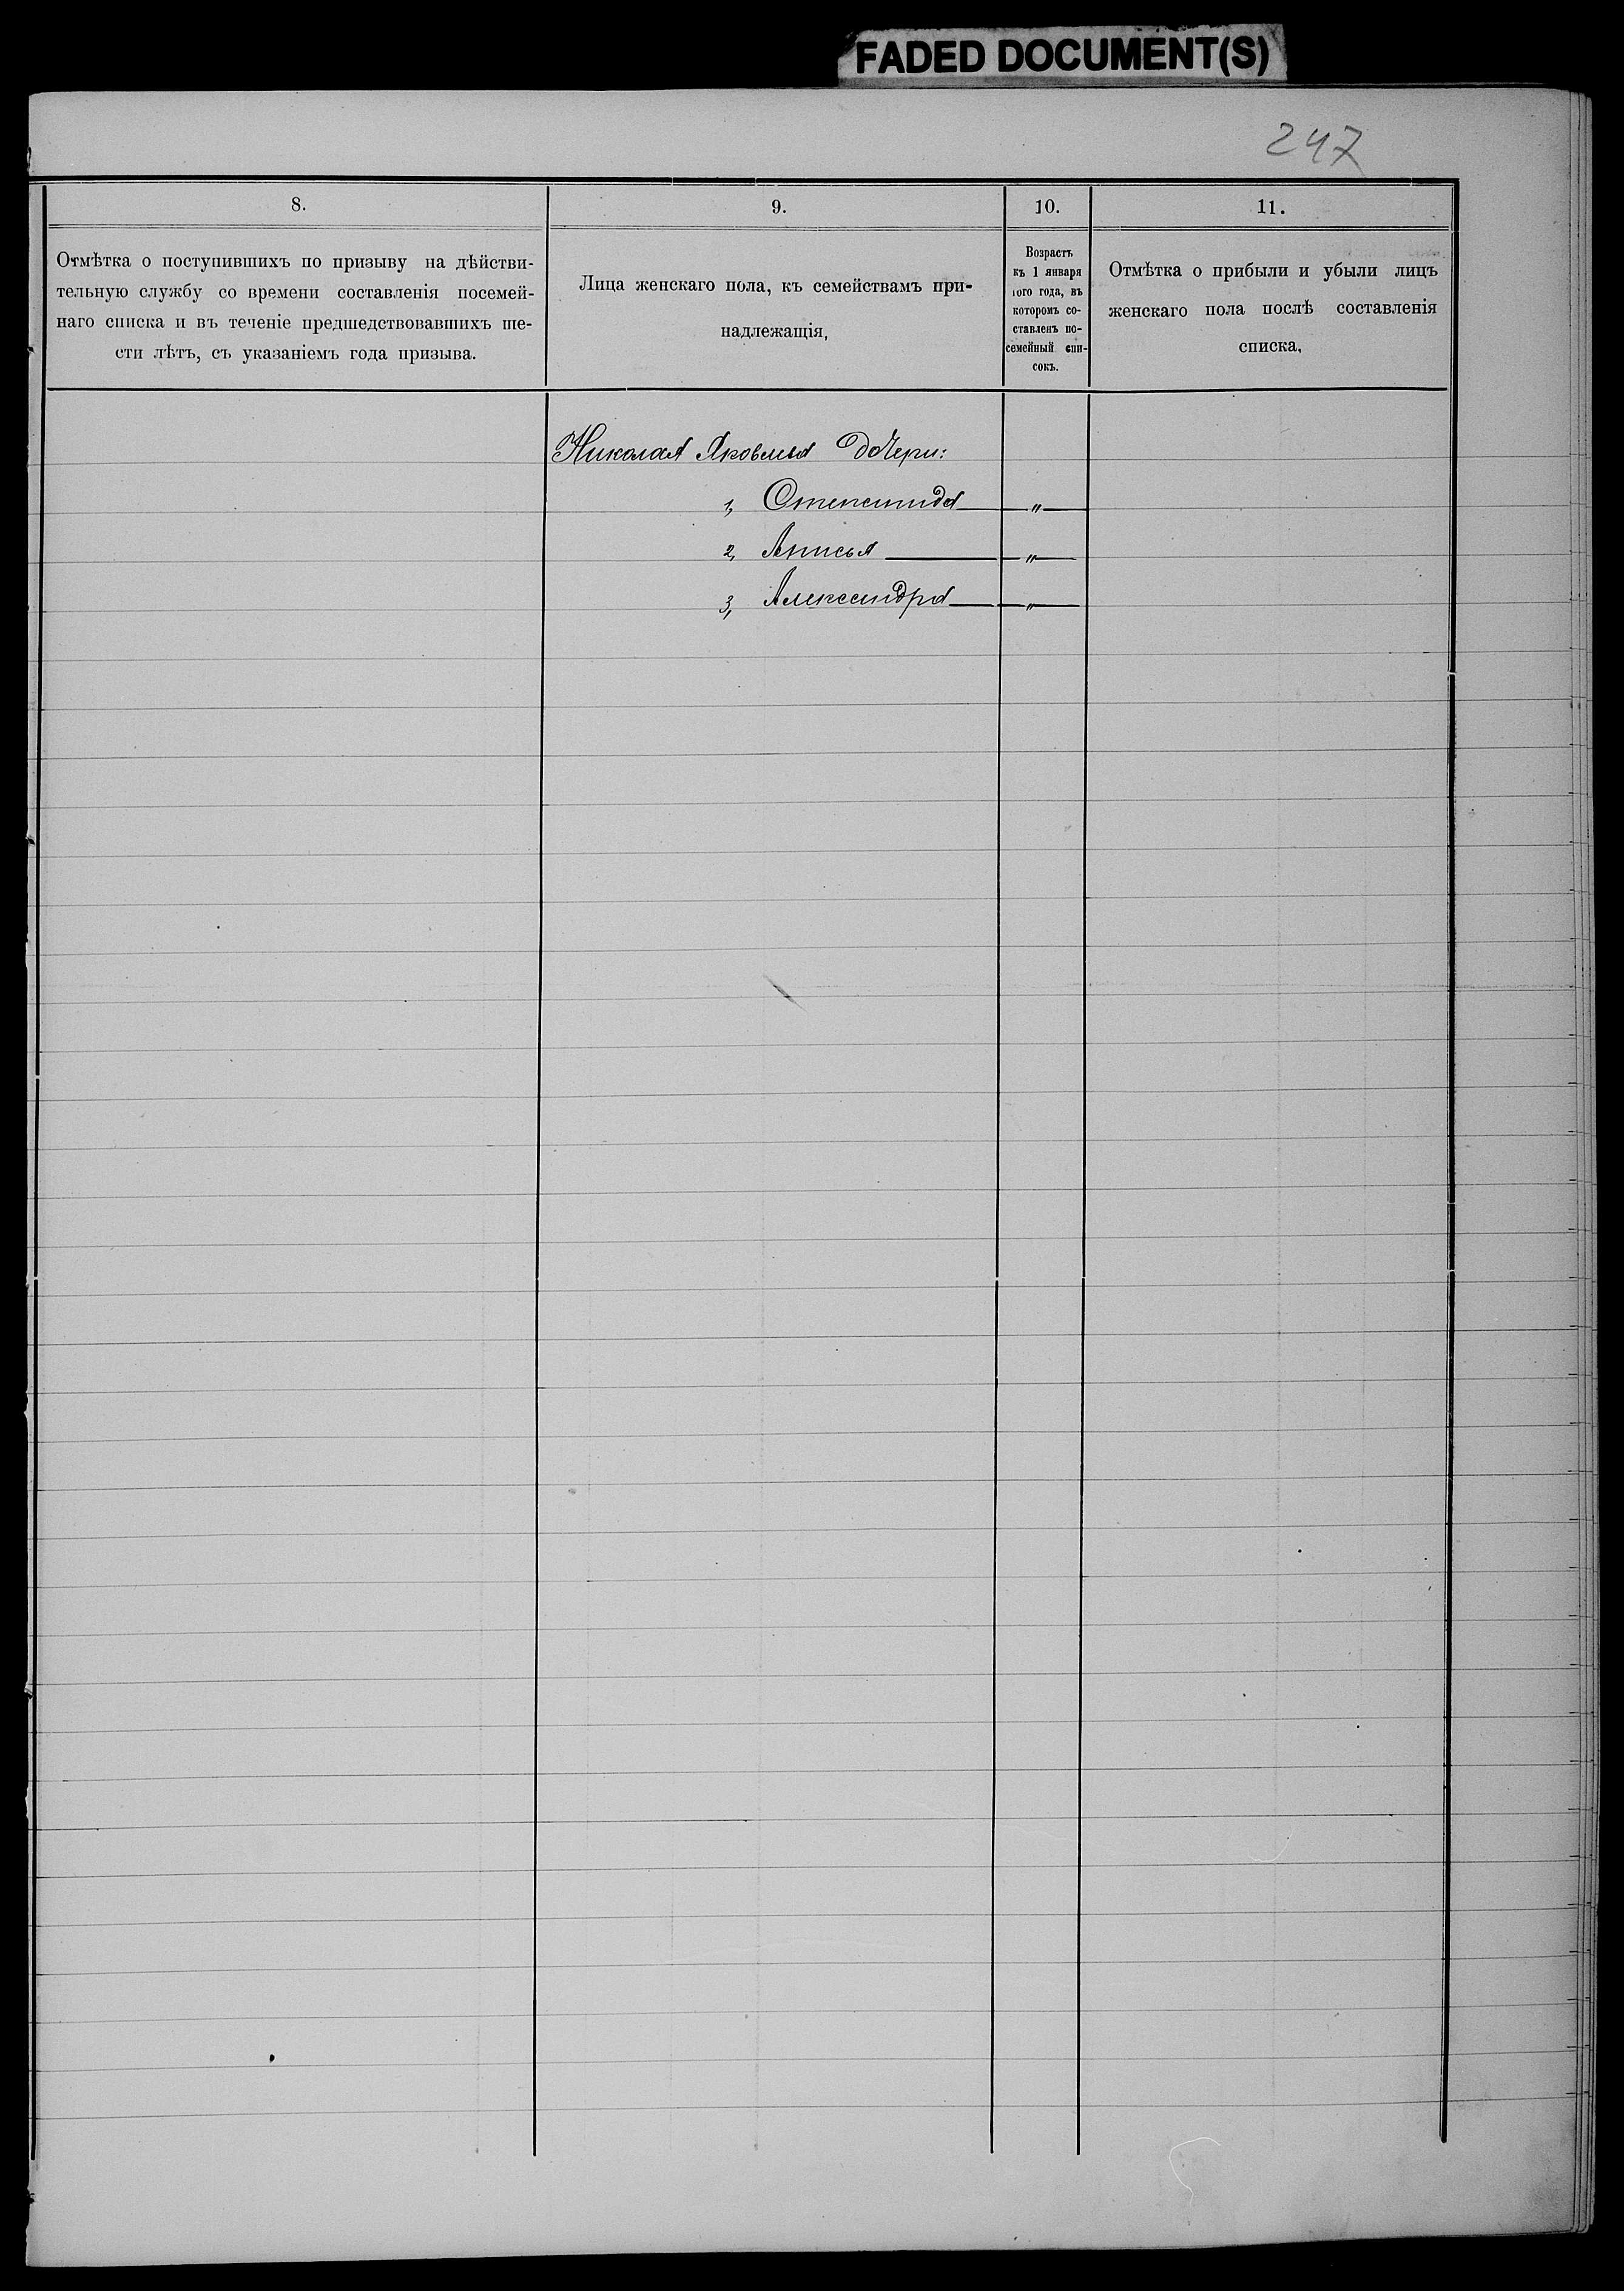 FADED DOCUMENT(S)
247
8.
Отмѣтка о поступившихъ по призыву на дѣйстви-
тельную службу со времени составленія посемей-
наго списка и въ теченіе предшедствовавшихъ ше-
сти лѣтъ, съ указаніемъ года призыва.
9.
Лица женскаго пола, къ семействамъ при-
надлежащія,
10.
Возрастъ
къ 1 января
того года, въ
которомъ со-
ставленъ по-
семейный спи-
сокъ.
11.
Отмѣтка о прибыли и убыли лицъ
женскаго пола послѣ составленія
списка,
Николая Яковлева дочери:
1, "
2, Анисья "
3, Александра "